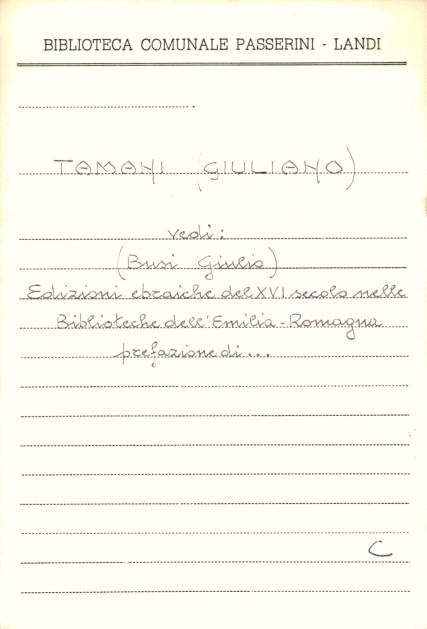 BIBLIOTECA COMUNALE PASSERINI - LANDI
TAMANI (GIULIANO)
vedi:
(Busi Giulio)
Edizioni ebraiche del XVI secolo nelle
Biblioteche dell'Emilia-Romagna
prefazione di...
C